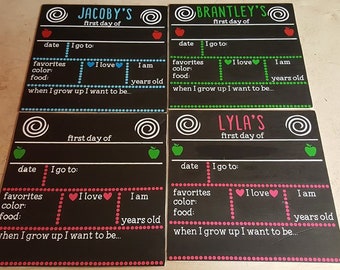 JACOBY'S
first day of
date I go to:
favorites I love I am
color:
food: years old
when I grow up I want to be...
BRANTLEY'S
first day of
date I go to:
favorites I love I am
color:
food: years old
when I grow up I want to be...
first day of
date I go to:
favorites I love I am
color:
food: years old
when I grow up I want to be...
LYLA'S
first day of
date I go to:
favorites I love I am
color:
food: years old
when I grow up I want to be...